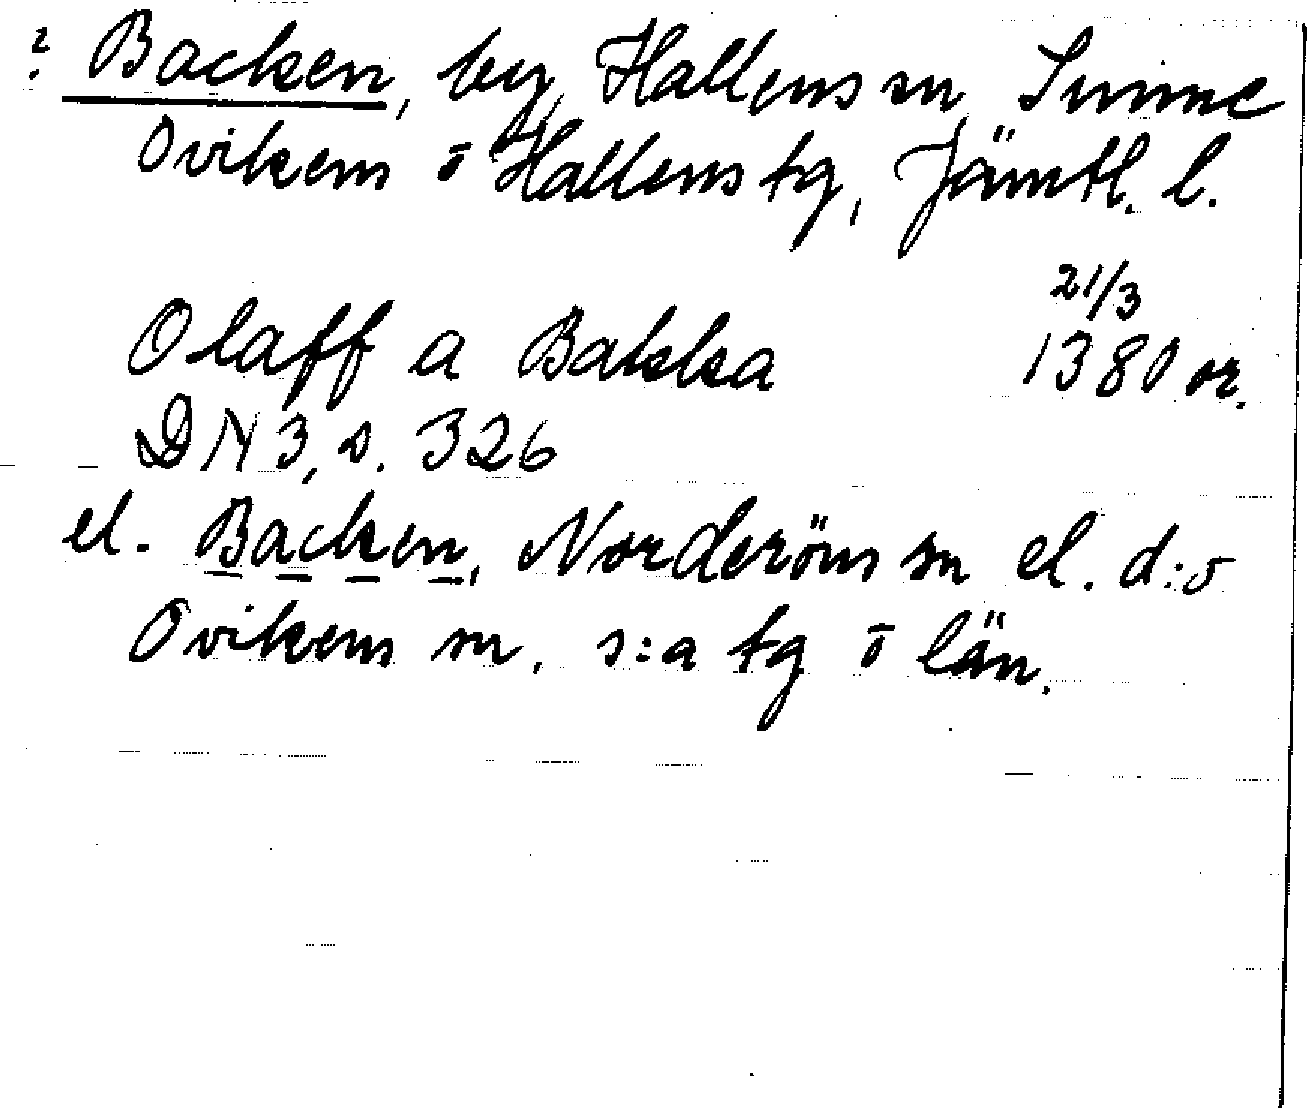 ? Backen, by, Hallens sn, Sunne
Ovikens o Hallens tg, Jämtl. l.
21/3
Olaff a Bakka 1380 or.
DN 3, s. 326
el. Backen, Norderöns sn el. d:o
Ovikens sn, s:a tg o län.